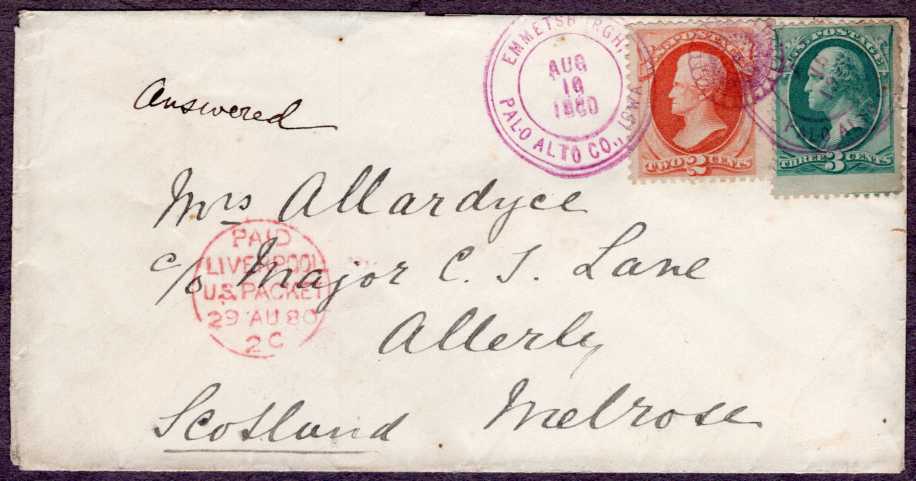 EMMETSBURGH,
AUG
10
1880
PALO ALTO CO., IOWA
U.S. POSTAGE
TWO 2 CENTS
U.S. POSTAGE
THREE 3 CENTS
PALO ALTO
Answered
Mrs Allardyce
c/o Major C. S. Lane
Allerly
Melrose
Scotland
PAID
LIVERPOOL
U.S. PACKET
29 AU 80
2C